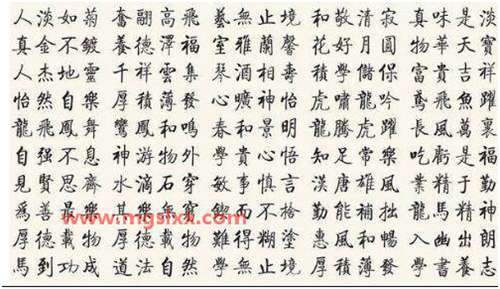 人淡如菊 奮翮高飛 藝無止境 和敬清寂 真味是淡
真金不鍍 養德澤福 室雅蘭馨 花好月圓 物華天寶
人杰地靈 千祥雲集 琴 相壽 學儲保 富貴吉祥
怡然自樂 厚積薄發 曠神怡 虎嘯龍吟 鳶飛魚躍
龍飛鳳舞 鸞鳳和鳴 春和景明 龍騰虎躍 長風萬裏
自强不息 神游物外 學貴心悟 知足常樂 吃虧是福
見賢思齊 水滴石穿 敏事慎言 漢唐雄風 業精于勤
為善最樂 其樂無窮 不 勤能補拙 龍馬精神
www.mgslxx.com
厚德載物 厚德載物 難得糊塗 惠風和暢 入幽出朗
馬到功成 道法自然 學無止境 厚積薄發 學書養志